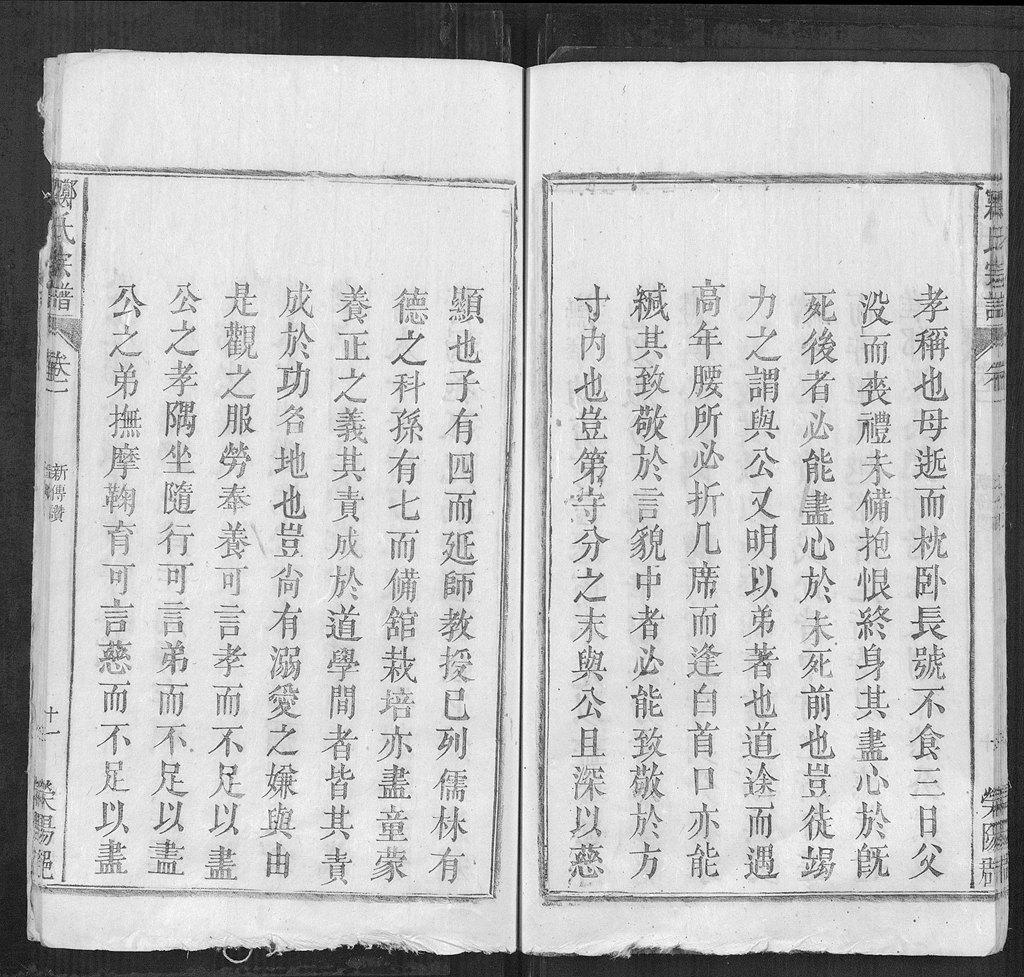 孝稱也母逝而枕卧長號不食三日父
没而喪禮未備抱恨終身其盡心於旣
死後者必能盡心於未死前也豈徒竭
力之謂與公又明以弟著也道途而遇
高年腰所必折几席而逢白首口亦能
緘其致敬於言貌中者必能致敬於方
寸內也豈第守分之末與公且深以慈
顯也子有四而延師教授已列儒林有
德之科孫有七而備舘栽培亦盡童蒙
養正之義其責成於道學間者皆其責
成於功名地也豈尙有溺愛之嫌與由
是觀之服勞奉養可言孝而不足以盡
公之孝隅坐隨行可言弟而不足以盡
公之弟撫摩鞠育可言慈而不足以盡
鄭氏宗譜
卷一
新傳讚
十一
滎陽